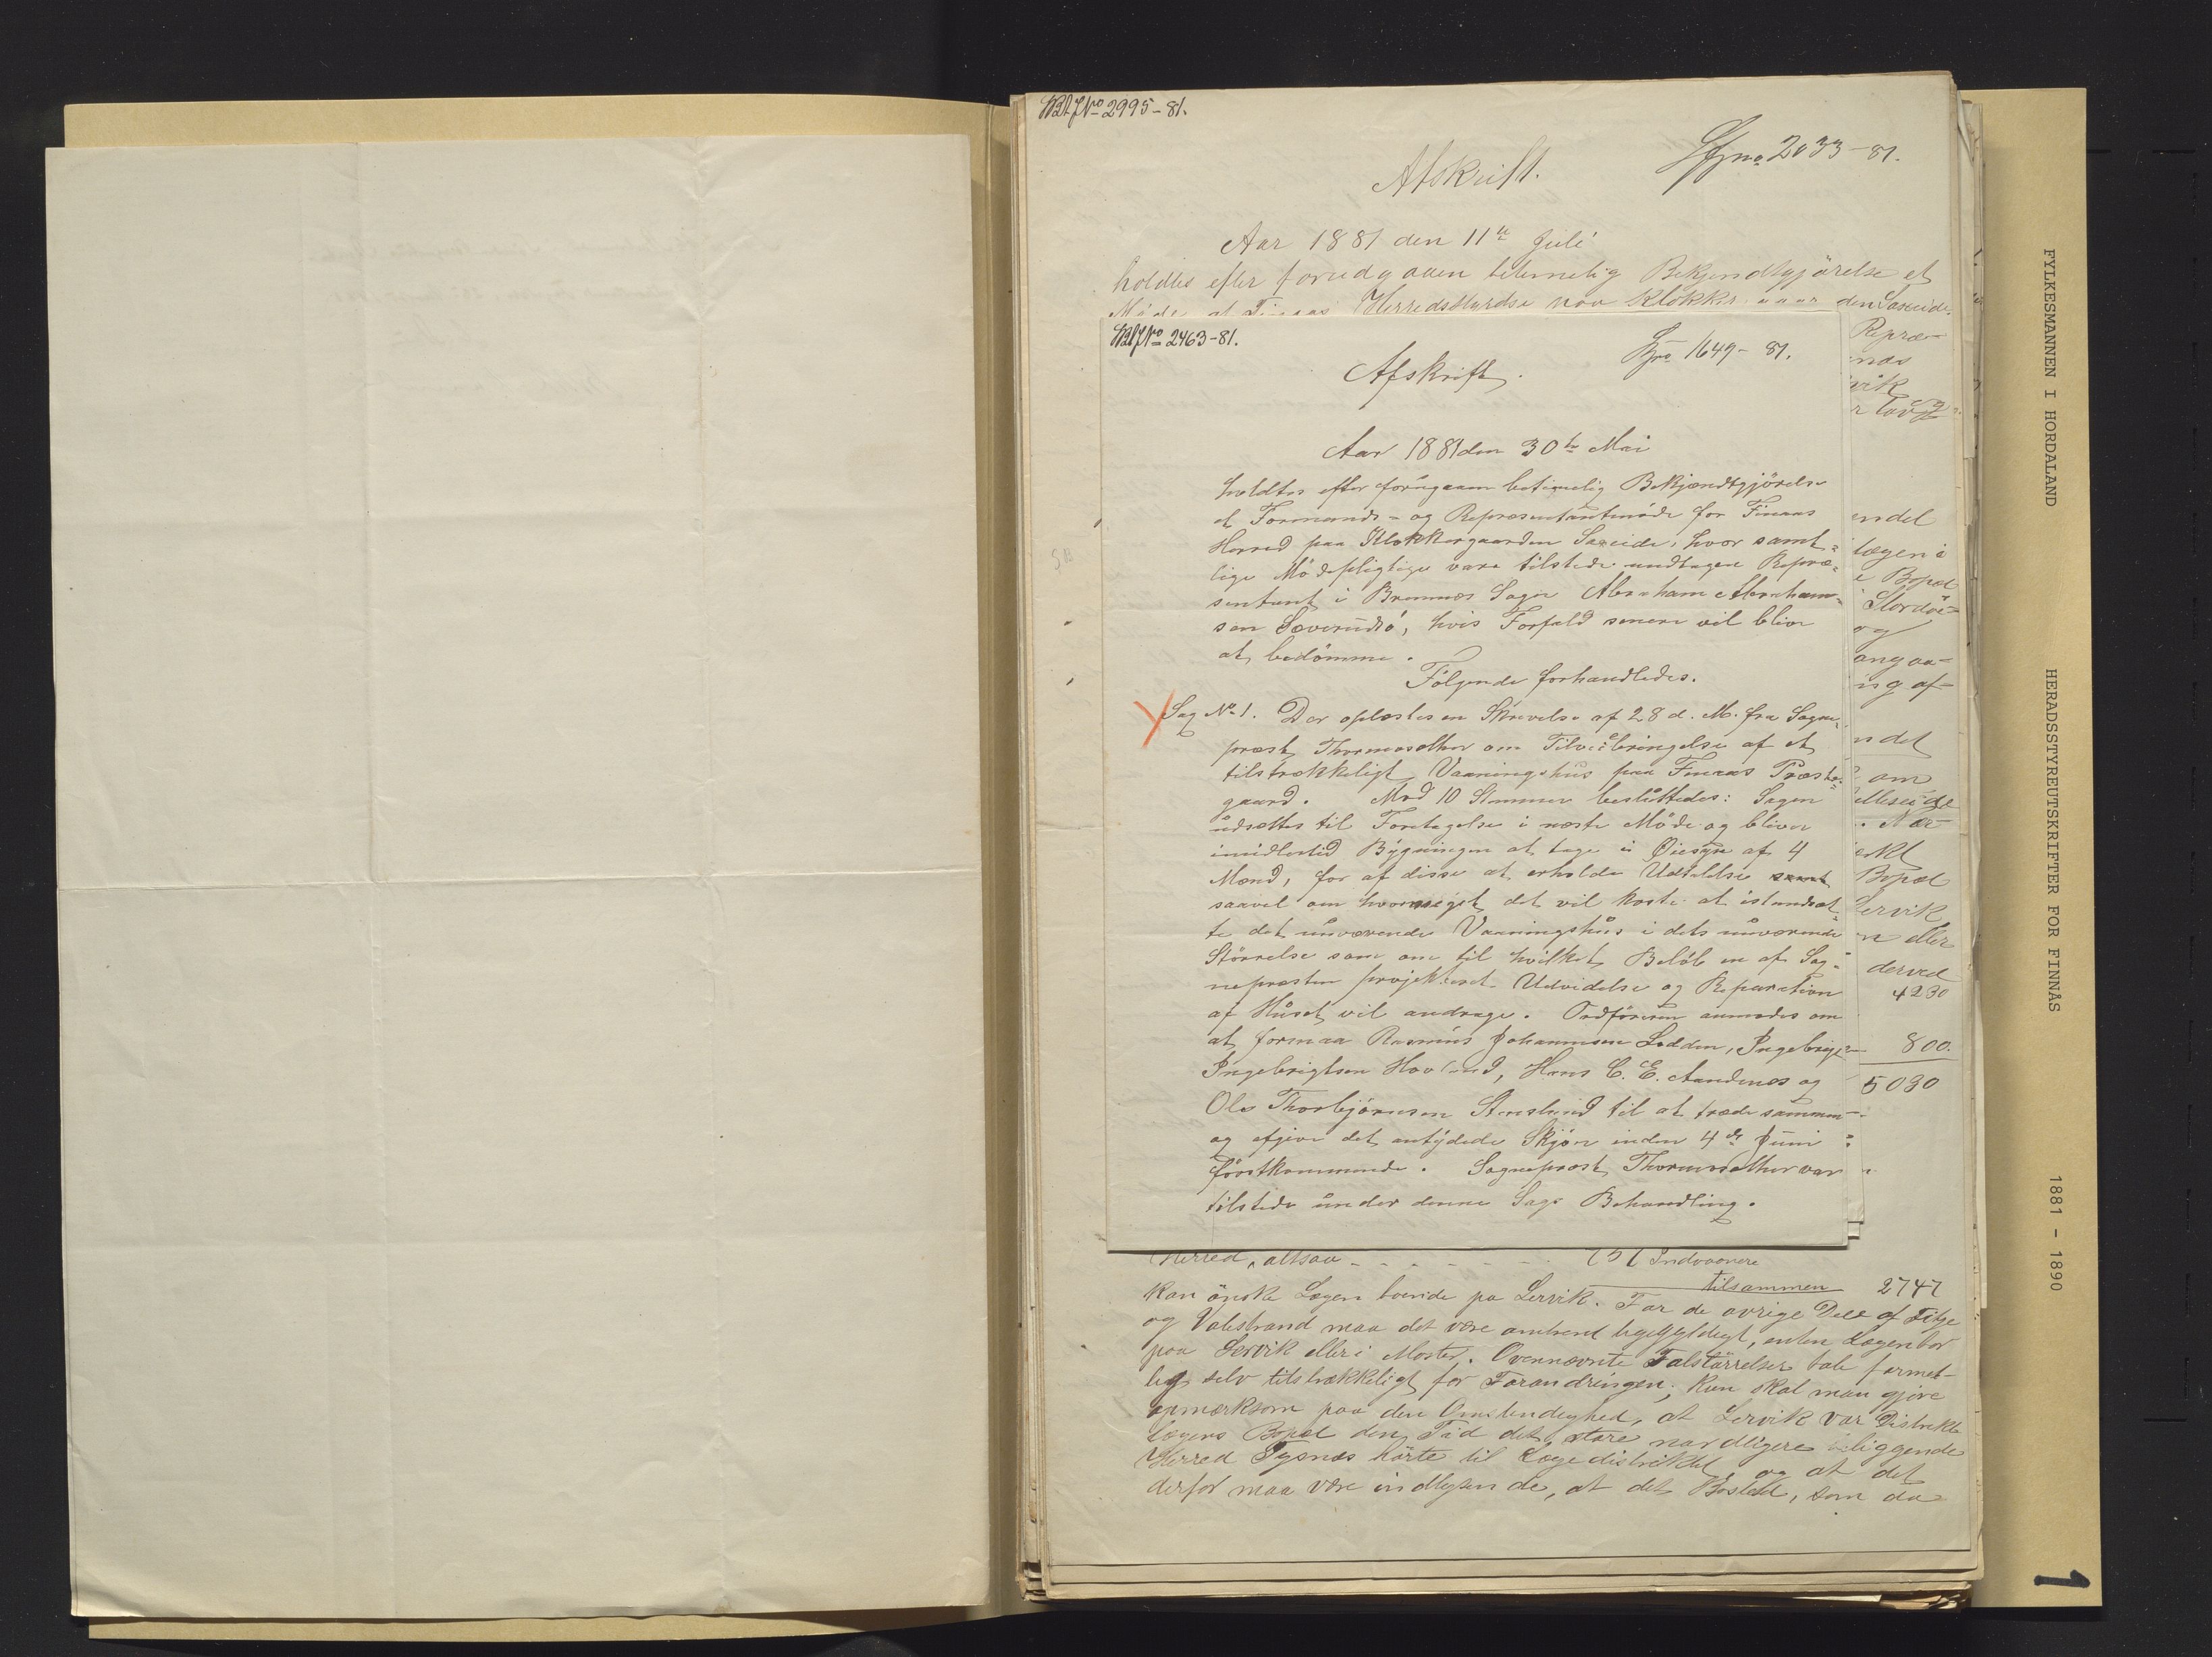 No 2995-81.
2033-81.
Afskrift.
Aar 1881 den 11te Juli
holdtes efter forudgaaen betimelig Bekjendtgjørelse et
Møde af Finaas Herredsstyrelse paa Klokkergaarden Saxeide
Repræ-
 vik
No 2463-81.
1649-81.
Afskrift.
Aar 1881 den 30te Mai
holdtes efter forudgaaen betimelig Bekjændtgjørelse
et Formands- og Repræsentantmøde for Finaas
Herred paa Klokkergaarden Saxeide, hvor samt-
lige Mødepligtige vare tilstede undtagen Repræ-
sentant i Bremnæs Sogn Abraham Abraham-
sen Søverudsø, hvis Forfald senere vil blive
at bedømme.
Følgende forhandledes.
Sag No 1. Der oplæstes en Skrivelse af 28 d. M. fra Sogne-
præst Thormosæther om Tilveiebringelse af et
tilstrækkeligt Vaaningshus paa Finaas Præste-
gaard. Med 10 Stemmer besluttedes: Sagen
udsættes til Foretagelse i næste Møde og bliver
imidlertid Bygningen at tage i Øiesyn af 4
Mænd, for af disse at erholde Udtalelse samt
saavel om hvormeget det vil koste at istandsæt-
te det nuværende Vaaningshus i dets nuværende
Størrelse som om til hvilket Beløb en af Sog-
nepræsten projekteret Udvidelse og Reparation
af Huset vil andrage. Ordføreren anmodes om
at formaa Rasmus Johannesen Lodden, Ingebrigt
Ingebrigtsen Hovland, Hans C. E. Aandenes og
Ole Thorbjørnsen Stensland til at træde sammen
og afgive det antydede Skjøn inden 4de Juni
førstkommende. Sognepræst Thormosæther var
tilstede under denne Sags Behandling.
ndel
lægen i
e Bopæl
Stordøe-
og
angaa-
ing af-
n det
om
Nær-
Bopæl
Lervik
n eller
derved
4230
800.
5030
Herred, altsaa - - - - - - - 757 Indvaanere
tilsammen 2747
kan ønske Lægen boende pa Lervik. For de øvrige Dele af Fitje
og Valestrand maa det være omtrent ligegyldigt, enten Lægen bor
paa Lervik eller i Moster. Ovennævnte Talstørrelser tale forment-
lig selv tilstrækkeligt for Forandringen; kun skal man gjøre
opmærksom paa den Omstendighed, at Lervik var Distrikts-
lægens Bopæl den Tid det store nordligere beliggende
Herred Tysnæs hørte til Lægedistriktet og at det
derfor maa være indlysende, at det Bosted, som da
FYLKESMANNEN I HORDALAND
HERADSSTYREUTSKRIFTER FOR FINNÅS
1881 - 1890
1